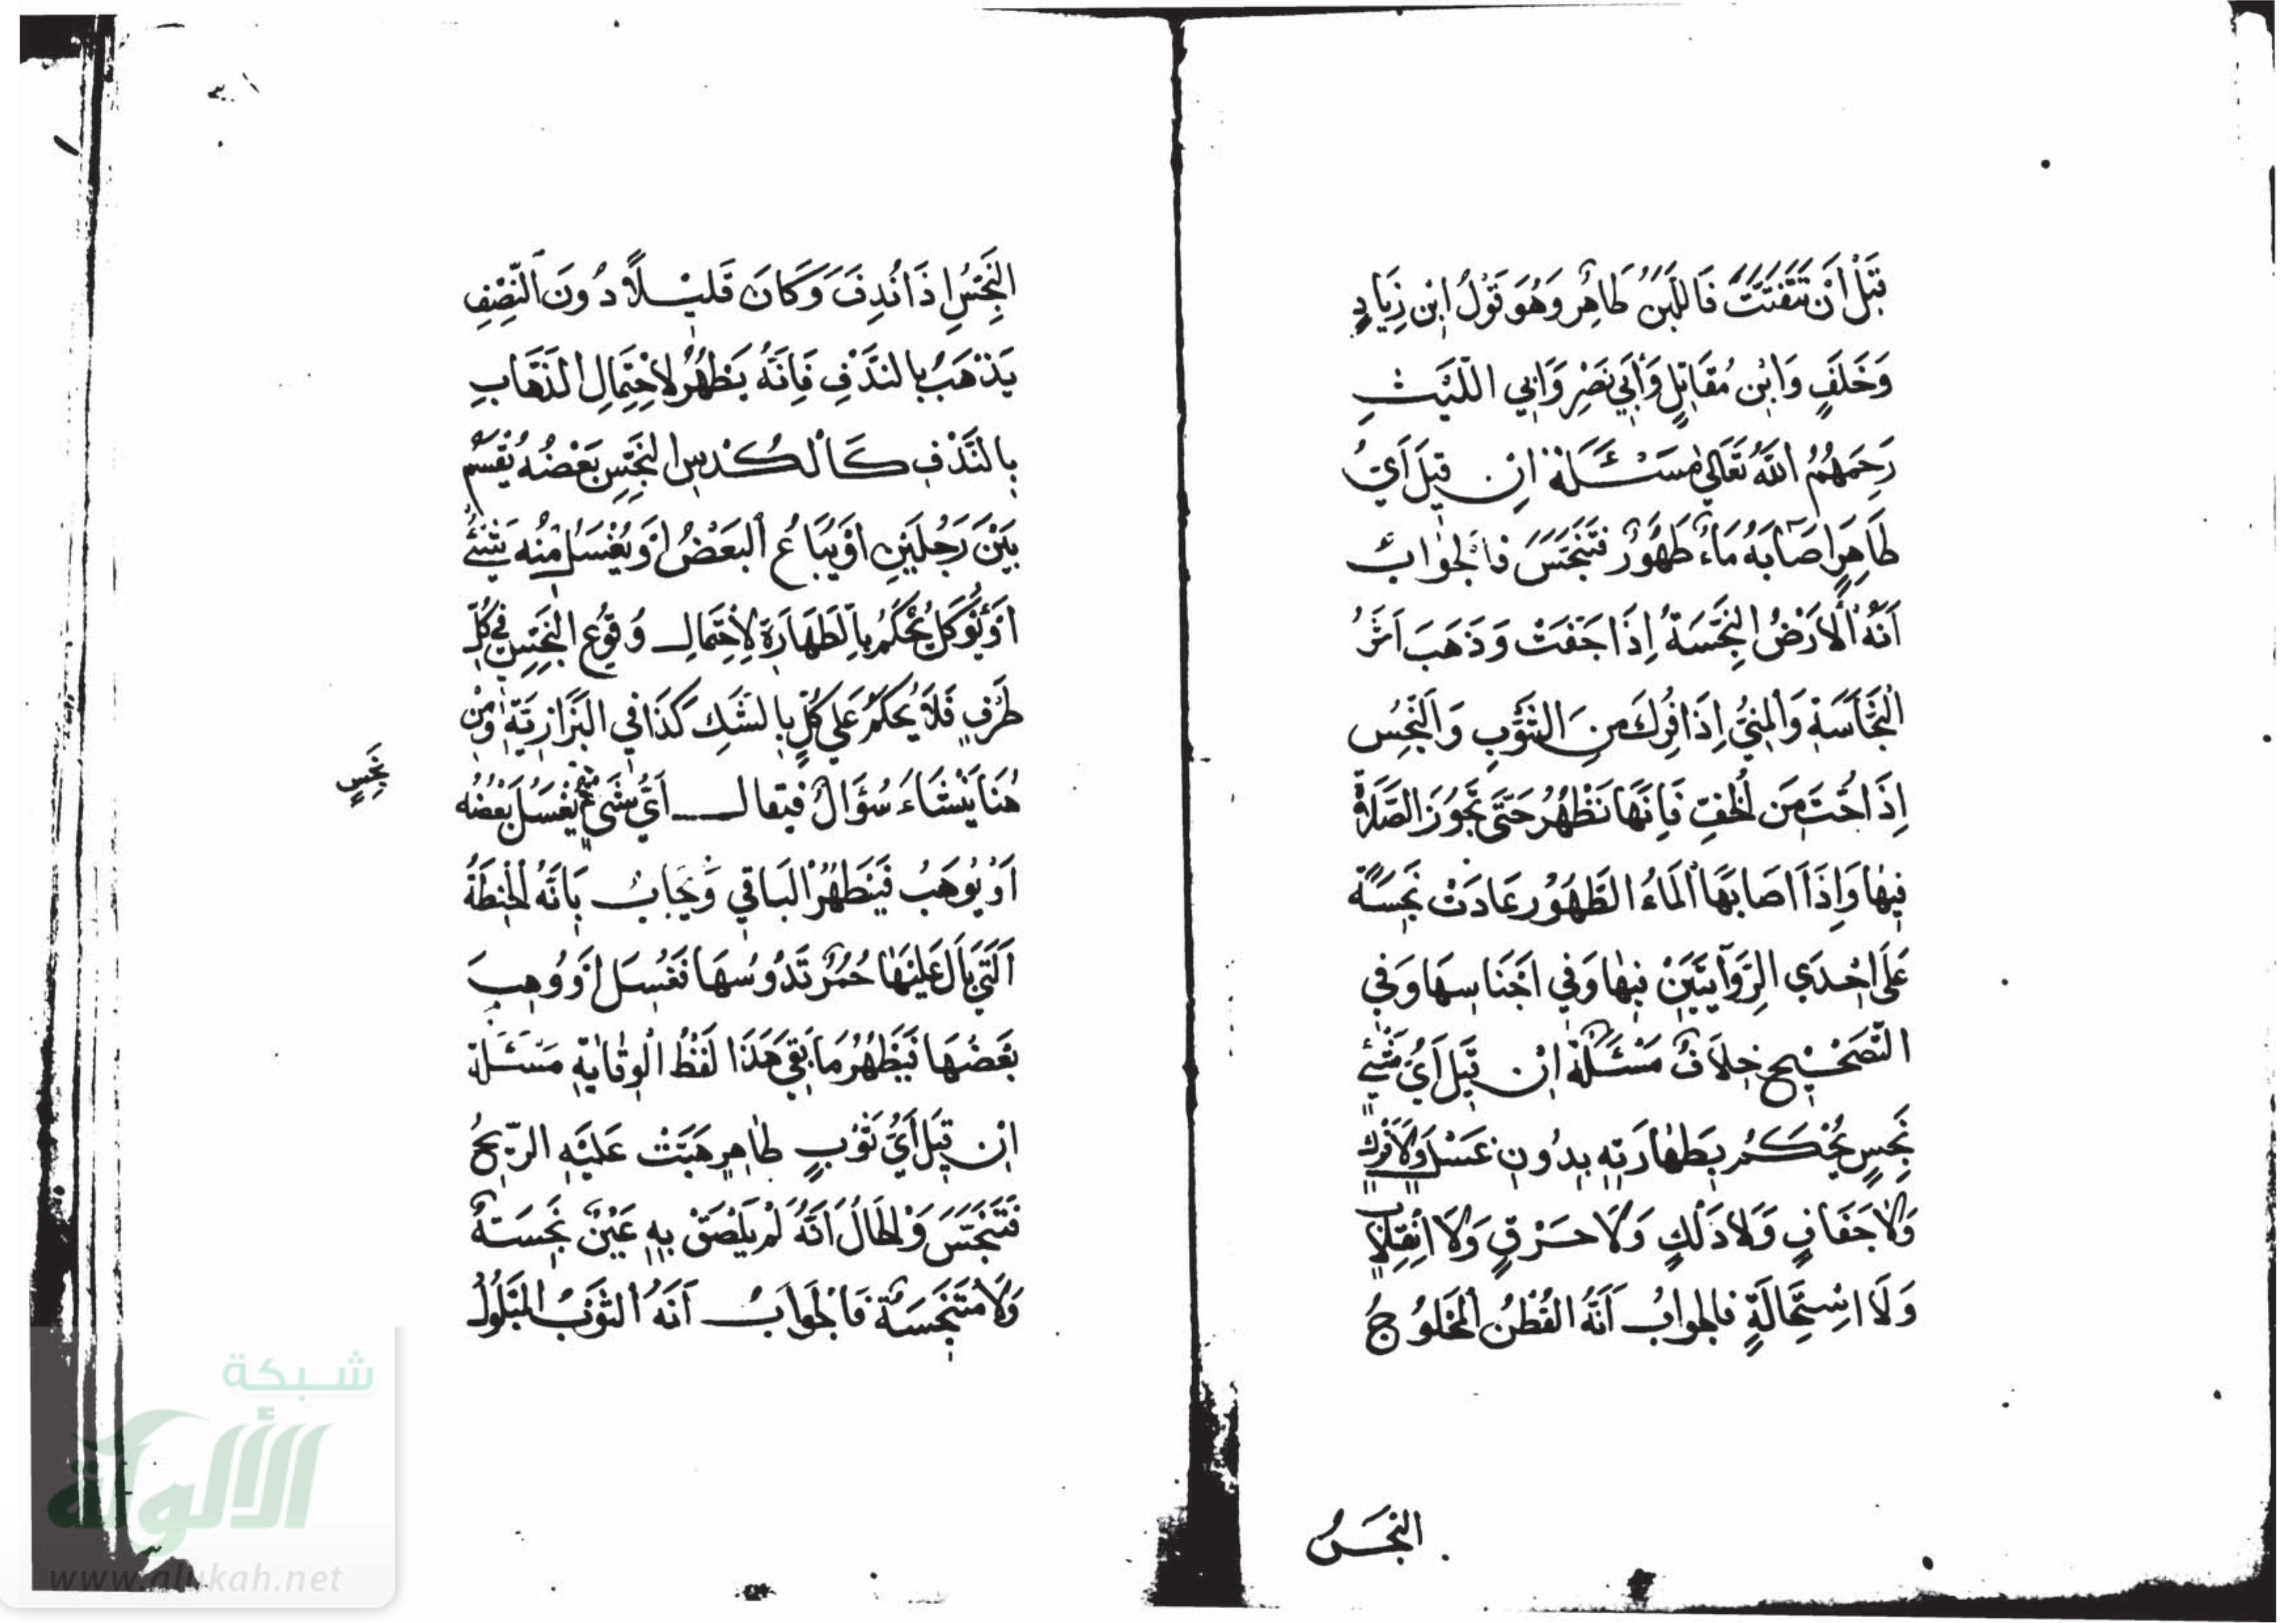 قَبْلَ أَنْ تَتَفَتَّتَ فَاللَّبَنُ طَاهِرٌ وَهُوَ قَوْلُ ابْنِ زِيَادٍ
وَخَلَفٍ وَابْنِ مُقَاتِلٍ وَأَبِي نَصْرٍ وَأَبِي اللَّيْثِ
رَحِمَهُمُ اللهُ تَعَالَى مَسْئَلَةٌ إِنْ قِيلَ أَيُّ
طَاهِرٍ أَصَابَهُ مَاءٌ طَهُورٌ فَتَنَجَّسَ فَالْجَوَابُ
أَنَّهُ الْأَرْضُ النَّجِسَةُ إِذَا جَفَّتْ وَذَهَبَ أَثَرُ
النَّجَاسَةِ وَالْمَنِيُّ إِذَا فُرِكَ مِنَ الثَّوْبِ وَالنَّجِسُ
إِذَا حُتَّ مِنَ الْخُفِّ فَإِنَّهَا تَطْهُرُ حَتَّى تَجُوزَ الصَّلَاةُ
فِيهَا وَإِذَا أَصَابَهَا الْمَاءُ الطَّهُورُ عَادَتْ نَجِسَةً
عَلَى إِحْدَى الرِّوَايَتَيْنِ فِيهَا وَفِي أَجْنَاسِهَا وَفِي
التَّصْحِيحِ خِلَافٌ مَسْئَلَةٌ إِنْ قِيلَ أَيُّ شَيْءٍ
نَجِسٍ يُحْكَمُ بِطَهَارَتِهِ بِدُونِ غَسْلٍ وَلَا فَرْكٍ
وَلَا جَفَافٍ وَلَا دَلْكٍ وَلَا حَرْقٍ وَلَا انْقِلَابٍ
وَلَا اسْتِحَالَةٍ فَالْجَوَابُ أَنَّهُ الْقُطْنُ الْمَحْلُوجُ
النَّجِسُ
النَّجِسُ إِذَا نُدِفَ وَكَانَ قَلِيلًا دُونَ النِّصْفِ
يَذْهَبُ بِالنَّدْفِ فَإِنَّهُ يَطْهُرُ لِاحْتِمَالِ الذَّهَابِ
بِالنَّدْفِ كَالْكُدْسِ النَّجِسِ بَعْضُهُ يُقْسَمُ
بَيْنَ رَجُلَيْنِ أَوْ يُبَاعُ الْبَعْضُ أَوْ يُغْسَلُ مِنْهُ شَيْءٌ
أَوْ يُؤْكَلُ يُحْكَمُ بِالطَّهَارَةِ لِاحْتِمَالِ وُقُوعِ النَّجِسِ فِي كُلِّ
طَرَفٍ فَلَا يُحْكَمُ عَلَى كُلٍّ بِالشَّكِّ كَذَا فِي الْبَزَّازِيَّةِ وَمِنْ
هُنَا يَنْشَاءُ سُؤَالٌ فَيُقَالُ أَيُّ شَيْءٍ يُغْسَلُ بَعْضُهُ
نَجِسٍ
أَوْ يُوهَبُ فَيَطْهُرُ الْبَاقِي وَيُجَابُ بِأَنَّهُ الْحِنْطَةُ
الَّتِي بَالَ عَلَيْهَا حُمُرٌ تَدُوسُهَا فَغُسِلَ أَوْ وُهِبَ
بَعْضُهَا فَيَطْهُرُ مَا بَقِيَ هَذَا لَفْظُ الْوِقَايَةِ مَسْئَلَةٌ
إِنْ قِيلَ أَيُّ ثَوْبٍ طَاهِرٍ هَبَّتْ عَلَيْهِ الرِّيحُ
فَتَنَجَّسَ وَالْحَالُ أَنَّهُ لَمْ يَلْصَقْ بِهِ عَيْنٌ نَجِسَةٌ
وَلَا مُتَنَجِّسَةٌ فَالْجَوَابُ أَنَّهُ الثَّوْبُ الْمَبْلُولُ
شبكة
الألوكة
www.alukah.net